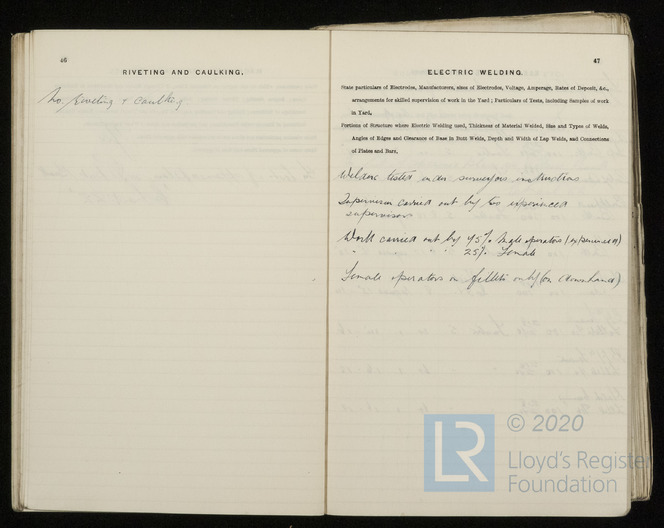 46
RIVETING AND CAULKING.
No. Riveting & Caulking
47
ELECTRIC WELDING.
State particulars of Electrodes, Manufacturers, sizes of Electrodes, Voltage, Amperage, Rates of Deposit, &c.,
arrangements for skilled supervision of work in the Yard; Particulars of Tests, including Samples of work
in Yard.
Portions of Structure where Electric Welding used, Thickness of Material Welded, Size and Types of Welds,
Angles of Edges and Clearance of Base in Butt Welds, Depth and Width of Lap Welds, and Connections
of Plates and Bars.
Welders tested under surveyors instructions
Supervision carried out by two experienced
supervisors
Work carried out by 75% male operators (experienced)
" " " 25% Female
Female operators on fillets only (on downhand)
© 2020
LR
Lloyd's Register
Foundation